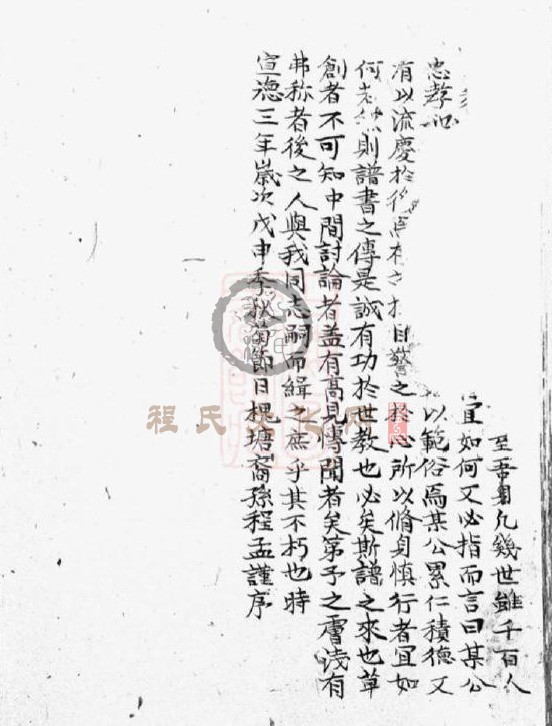 至吾身凡幾世雖千百人
宜如何又必指而言曰某公
忠孝
以範俗焉某公累仁積德又
有以流慶於後焉有自警之於心所以脩身慎行者宜如
何則譜書之傳是誠有功於世教也必矣斯譜之來也草
創者不可知中間討論者盖有高見博聞者矣第予之膚淺有
弗称者後之人與我同志嗣而緝之庶乎其不朽也時
宣德三年嵗次戊申季秋菊節日槐塘裔孫程孟謹序
程氏文化网